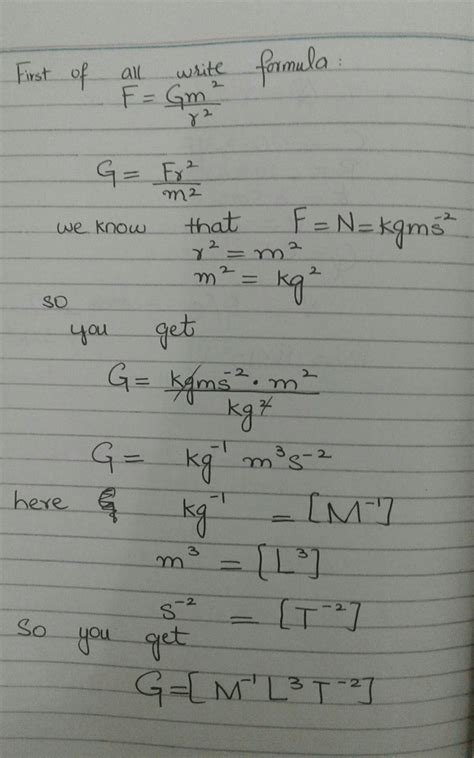 First of all write formula:
F = Gm²/r²
G = Fr²/m²
we know that F = N = kgms⁻²
r² = m²
m² = kg²
so
you get
G = kgms⁻² · m²/kg²
G = kg⁻¹ m³s⁻²
here kg⁻¹ = [M⁻¹]
m³ = [L³]
s⁻² = [T⁻²]
So you get
G = [M⁻¹ L³ T⁻²]